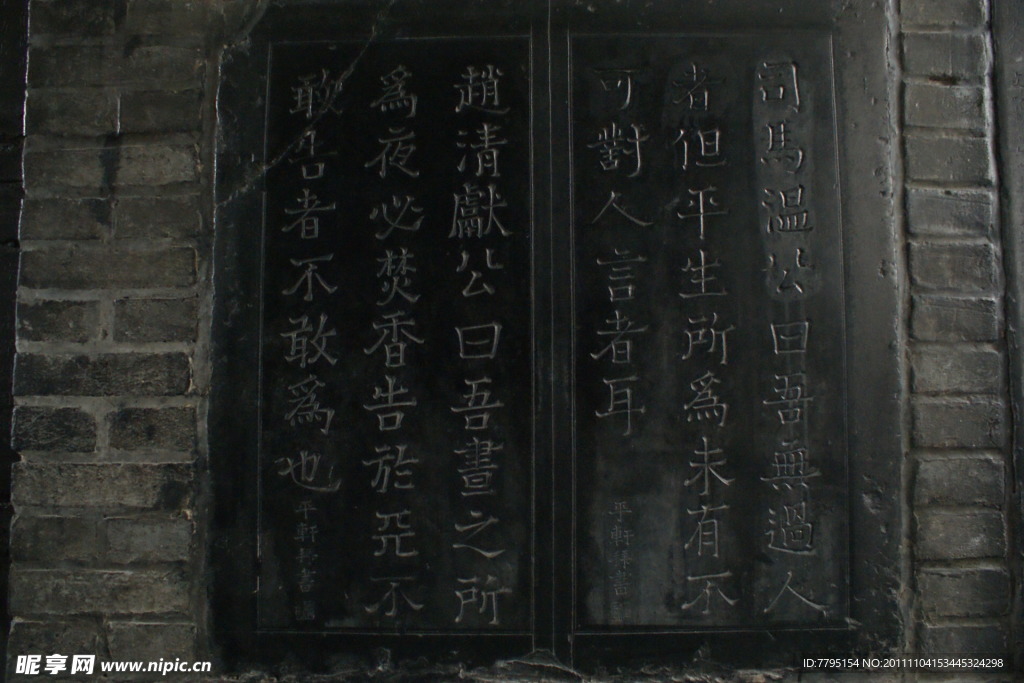 司馬温公曰吾無過人
者但平生所爲未有不
可對人言者耳
平軒拜書
趙清獻公曰吾晝之所
爲夜必焚香告於兲不
敢告者不敢爲也
平軒拜書
昵享网 www.nipic.cn
ID:7795154 NO:20111104153445324298